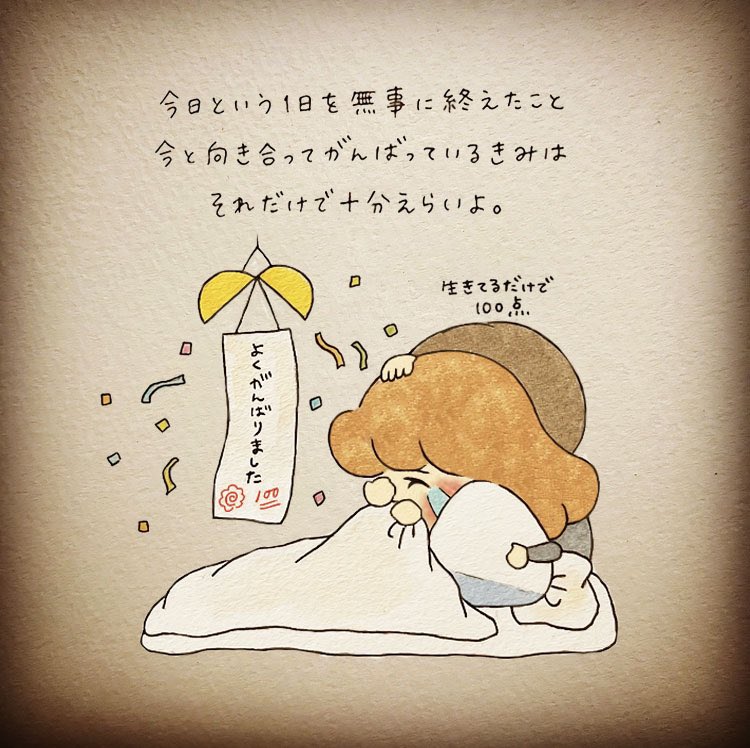 今日という1日を無事に終えたこと
今と向き合ってがんばっているきみは
それだけで十分えらいよ。
生きてるだけで
100点
よくがんばりました
100